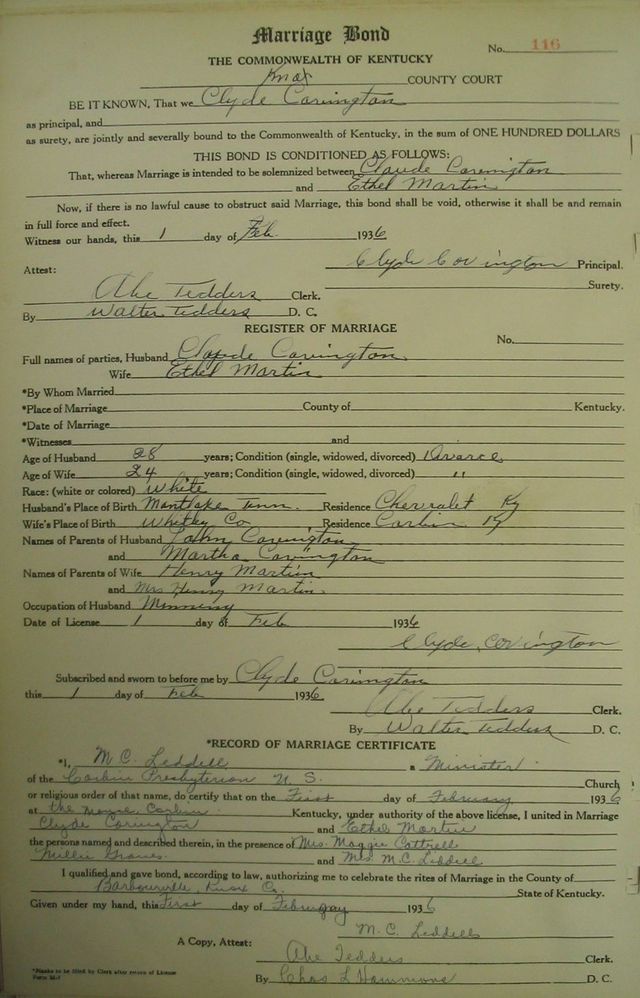 Marriage Bond
No. 116
THE COMMONWEALTH OF KENTUCKY
Knox COUNTY COURT
BE IT KNOWN, That we Clyde Covington
as principal, and
as surety, are jointly and severally bound to the Commonwealth of Kentucky, in the sum of ONE HUNDRED DOLLARS
THIS BOND IS CONDITIONED AS FOLLOWS:
That, whereas Marriage is intended to be solemnized between Claude Covington
and Ethel Martin
Now, if there is no lawful cause to obstruct said Marriage, this bond shall be void, otherwise it shall be and remain
in full force and effect.
Witness our hands, this 1 day of Feb. 1936
Clyde Covington Principal.
Attest: Surety.
Abe Tedders Clerk.
By Walter Tedders D. C.
REGISTER OF MARRIAGE
No.
Full names of parties, Husband Clyde Covington
Wife Ethel Martin
*By Whom Married
*Place of Marriage County of Kentucky.
*Date of Marriage
*Witnesses and
Age of Husband 28 years; Condition (single, widowed, divorced) Divorce
Age of Wife 24 years; Condition (single, widowed, divorced) "
Race: (white or colored) White
Husband's Place of Birth Montlake Tenn. Residence Chevrolet Ky
Wife's Place of Birth Whitley Co Residence Corbin Ky
Names of Parents of Husband John Covington
and Martha Covington
Names of Parents of Wife Henry Martin
and Mrs Henry Martin
Occupation of Husband Minning
Date of License 1 day of Feb 1936
Clyde, Covington
Subscribed and sworn to before me by Clyde Covington
this 1 day of Feb 1936
Abe Tedders Clerk.
By Walter Tedders D. C.
*RECORD OF MARRIAGE CERTIFICATE
*I, M. C. Leddell a Minister
of the Corbin Presbyterian U. S. Church
or religious order of that name, do certify that on the First day of February 1936
at the manse Corbin Kentucky, under authority of the above license, I united in Marriage
Clyde Covington and Ethel Martin
the persons named and described therein, in the presence of Mrs. Maggie Cottrell
Millie and Mrs. M.C. Liddell
I qualified and gave bond, according to law, authorizing me to celebrate the rites of Marriage in the County of
Barbourville, Knox Co. State of Kentucky.
Given under my hand, this First day of February 1936
M. C. Liddell
A Copy, Attest:
Abe Tedders Clerk.
By Chas L Hammons D. C.
*Blanks to be filled by Clerk after return of License